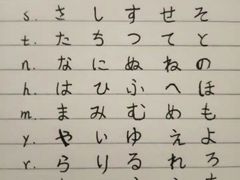 s. さ し す せ そ
t. た ち つ て と
n. な に ぬ ね の
h. は ひ ふ へ ほ
m. ま み む め も
y. や い ゆ え よ
r. ら り る れ ろ